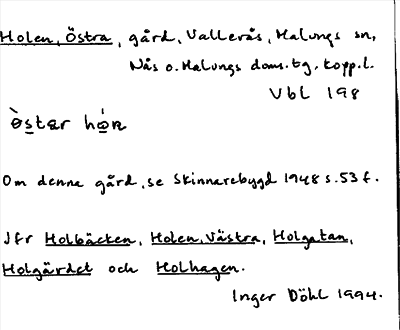 Holen, Östra, gård, Vallerås, Malungs sn,
Nås o. Malungs doms.tg, Kopp.l.
Vbl 198
Om denna gård, se Skinnarebygd 1948 s. 53 f.
Jfr Holbäcken, Holen, Västra, Holgatan,
Holgärdet och Holhagen.
Inger Döhl 1994.